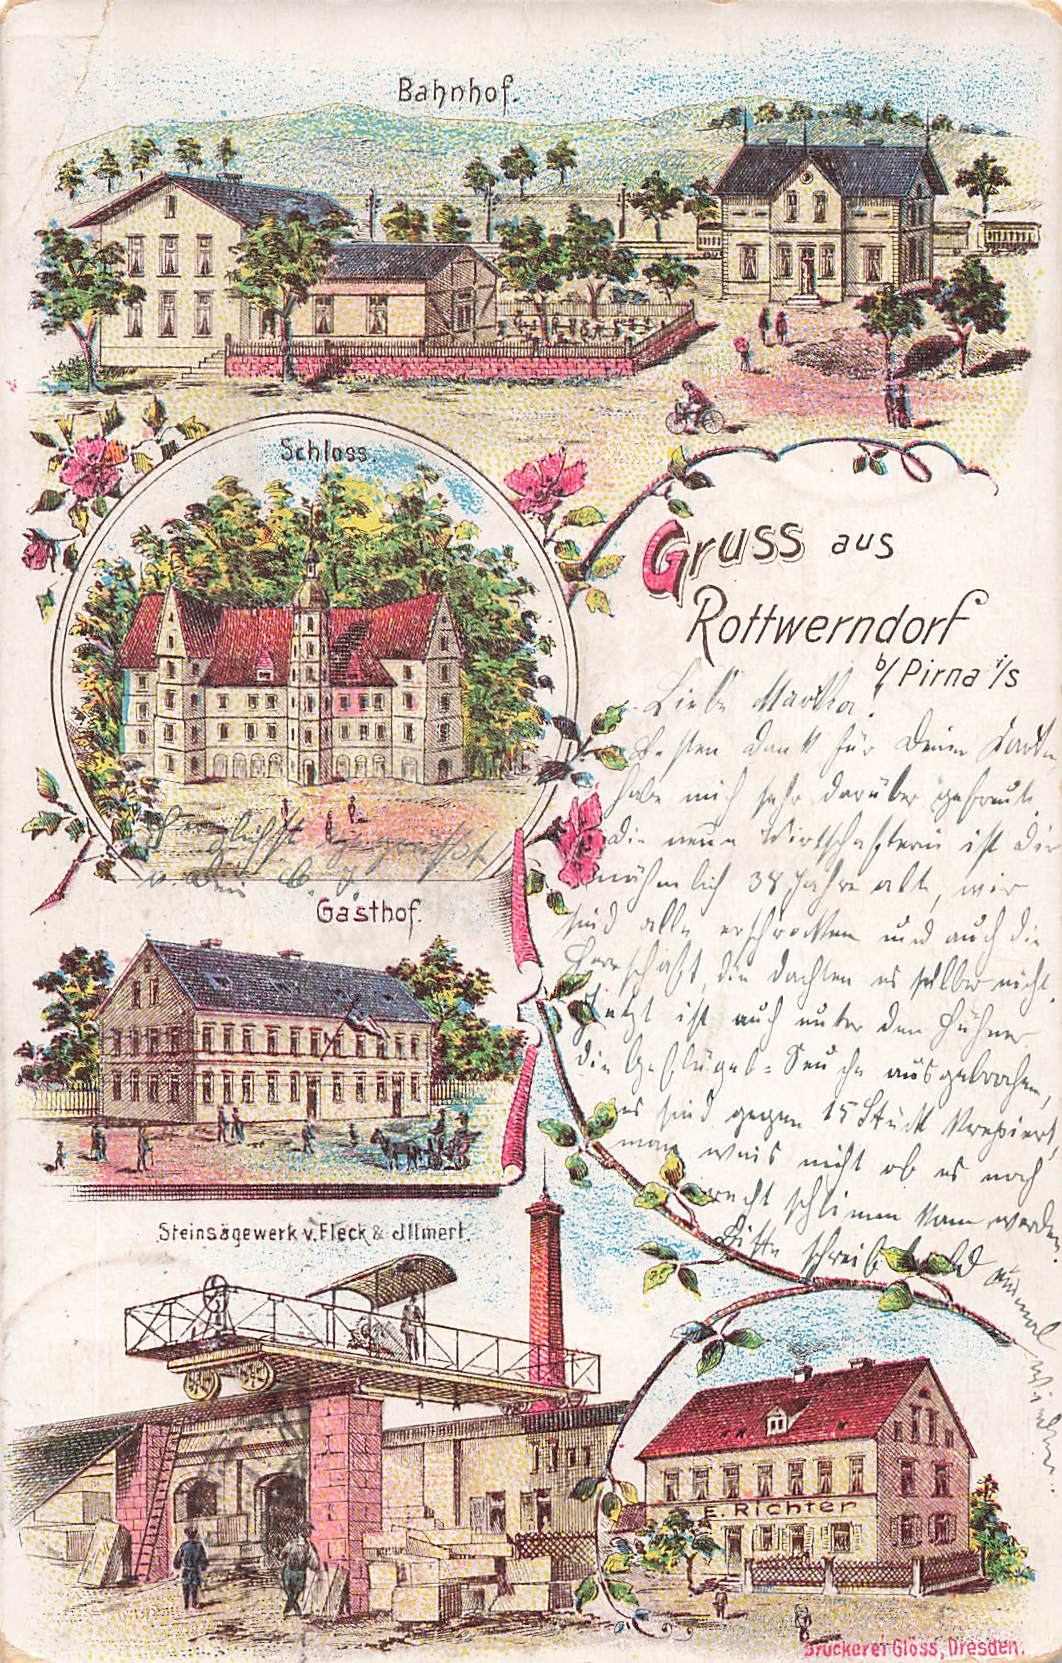 Bahnhof.
Schloss.
Gruss aus
Rottwerndorf
b/Pirna i/S
Liebe Martha!
Besten Dank für Deine Karte,
habe mich sehr darüber gefreut.
die neue Wirtschafterin ist die
nähmlich 38 Jahre alt, wir
sind alle erschrocken und auch die
Herrschaft, die dachten es selber nicht.
Jetzt ist auch unter den Hühner
die Geflügel-Seuche ausgebrochen,
es sind gegen 15 Stück krepiert,
man weis nicht ob es noch
recht schlimm kann werden.
Bitte schreib bald
mal
Herzlichst gegrüßt
v. Dein
Gasthof.
Steinsägewerk v. Fleck & Illmert.
E. Richter
Druckerei Glöss, Dresden.